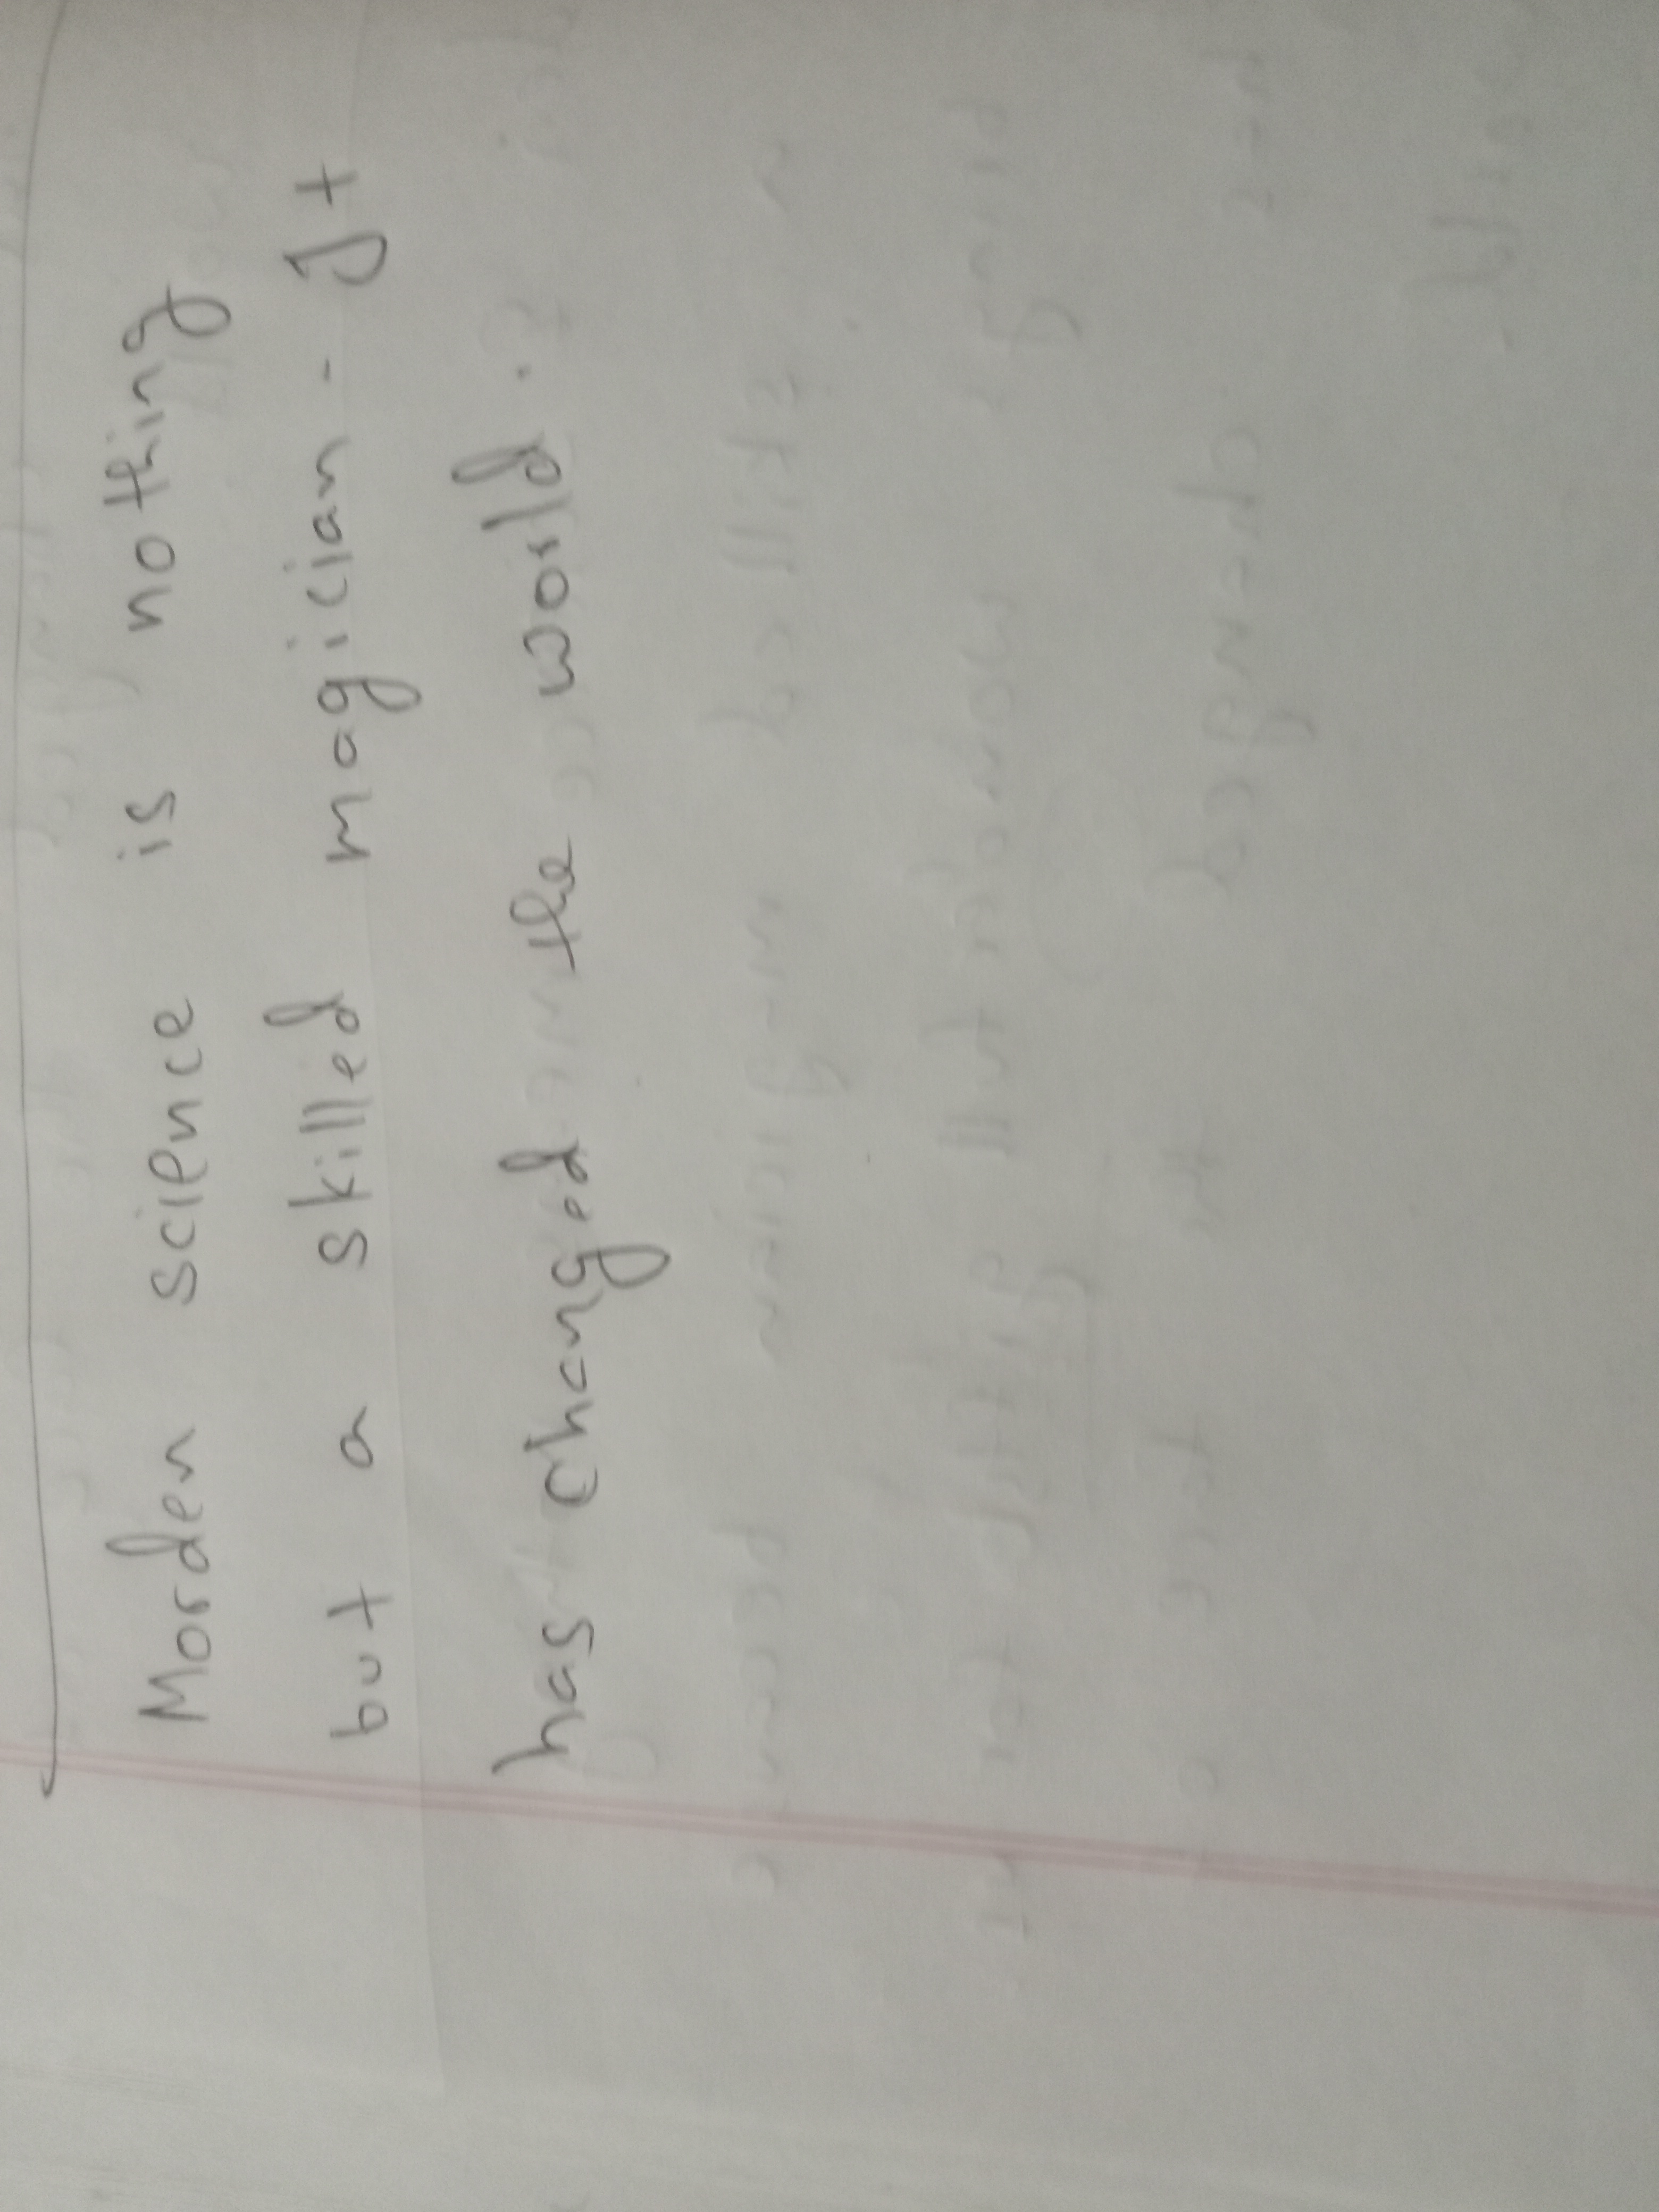 Morden science is nothing
but a skilled magician - It
has changed the world.